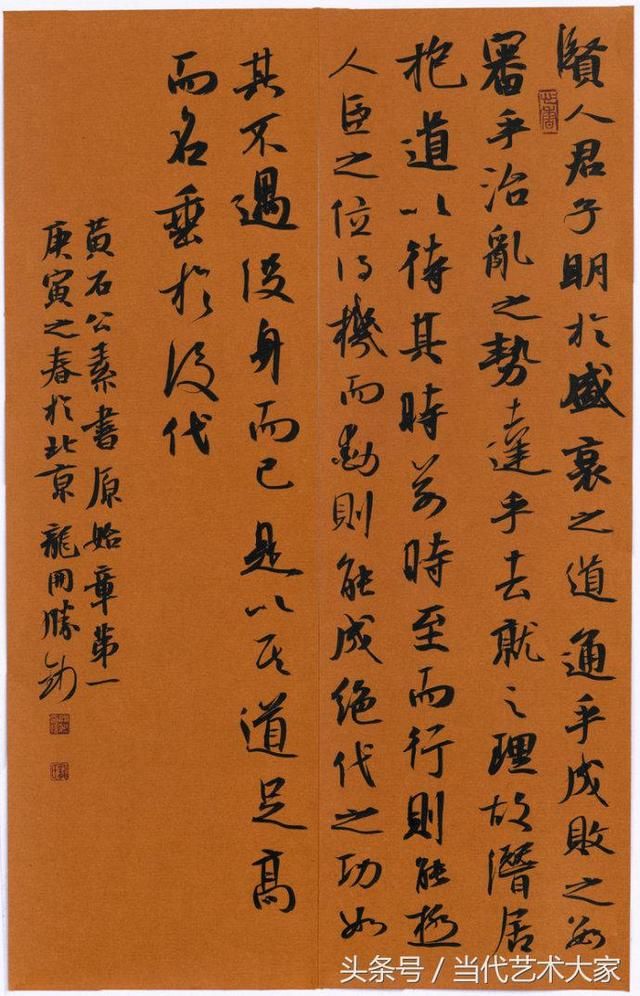 賢人君子明於盛衰之道通乎成敗之數
審乎治亂之勢達乎去就之理故潛居
抱道以待其時若時至而行則能極
人臣之位得機而動則能成絕代之功如
其不遇沒身而已是以其道足高
而名垂於後代
黃石公素書原始章第一
庚寅之春於北京龍開勝
头条号／当代艺术大家